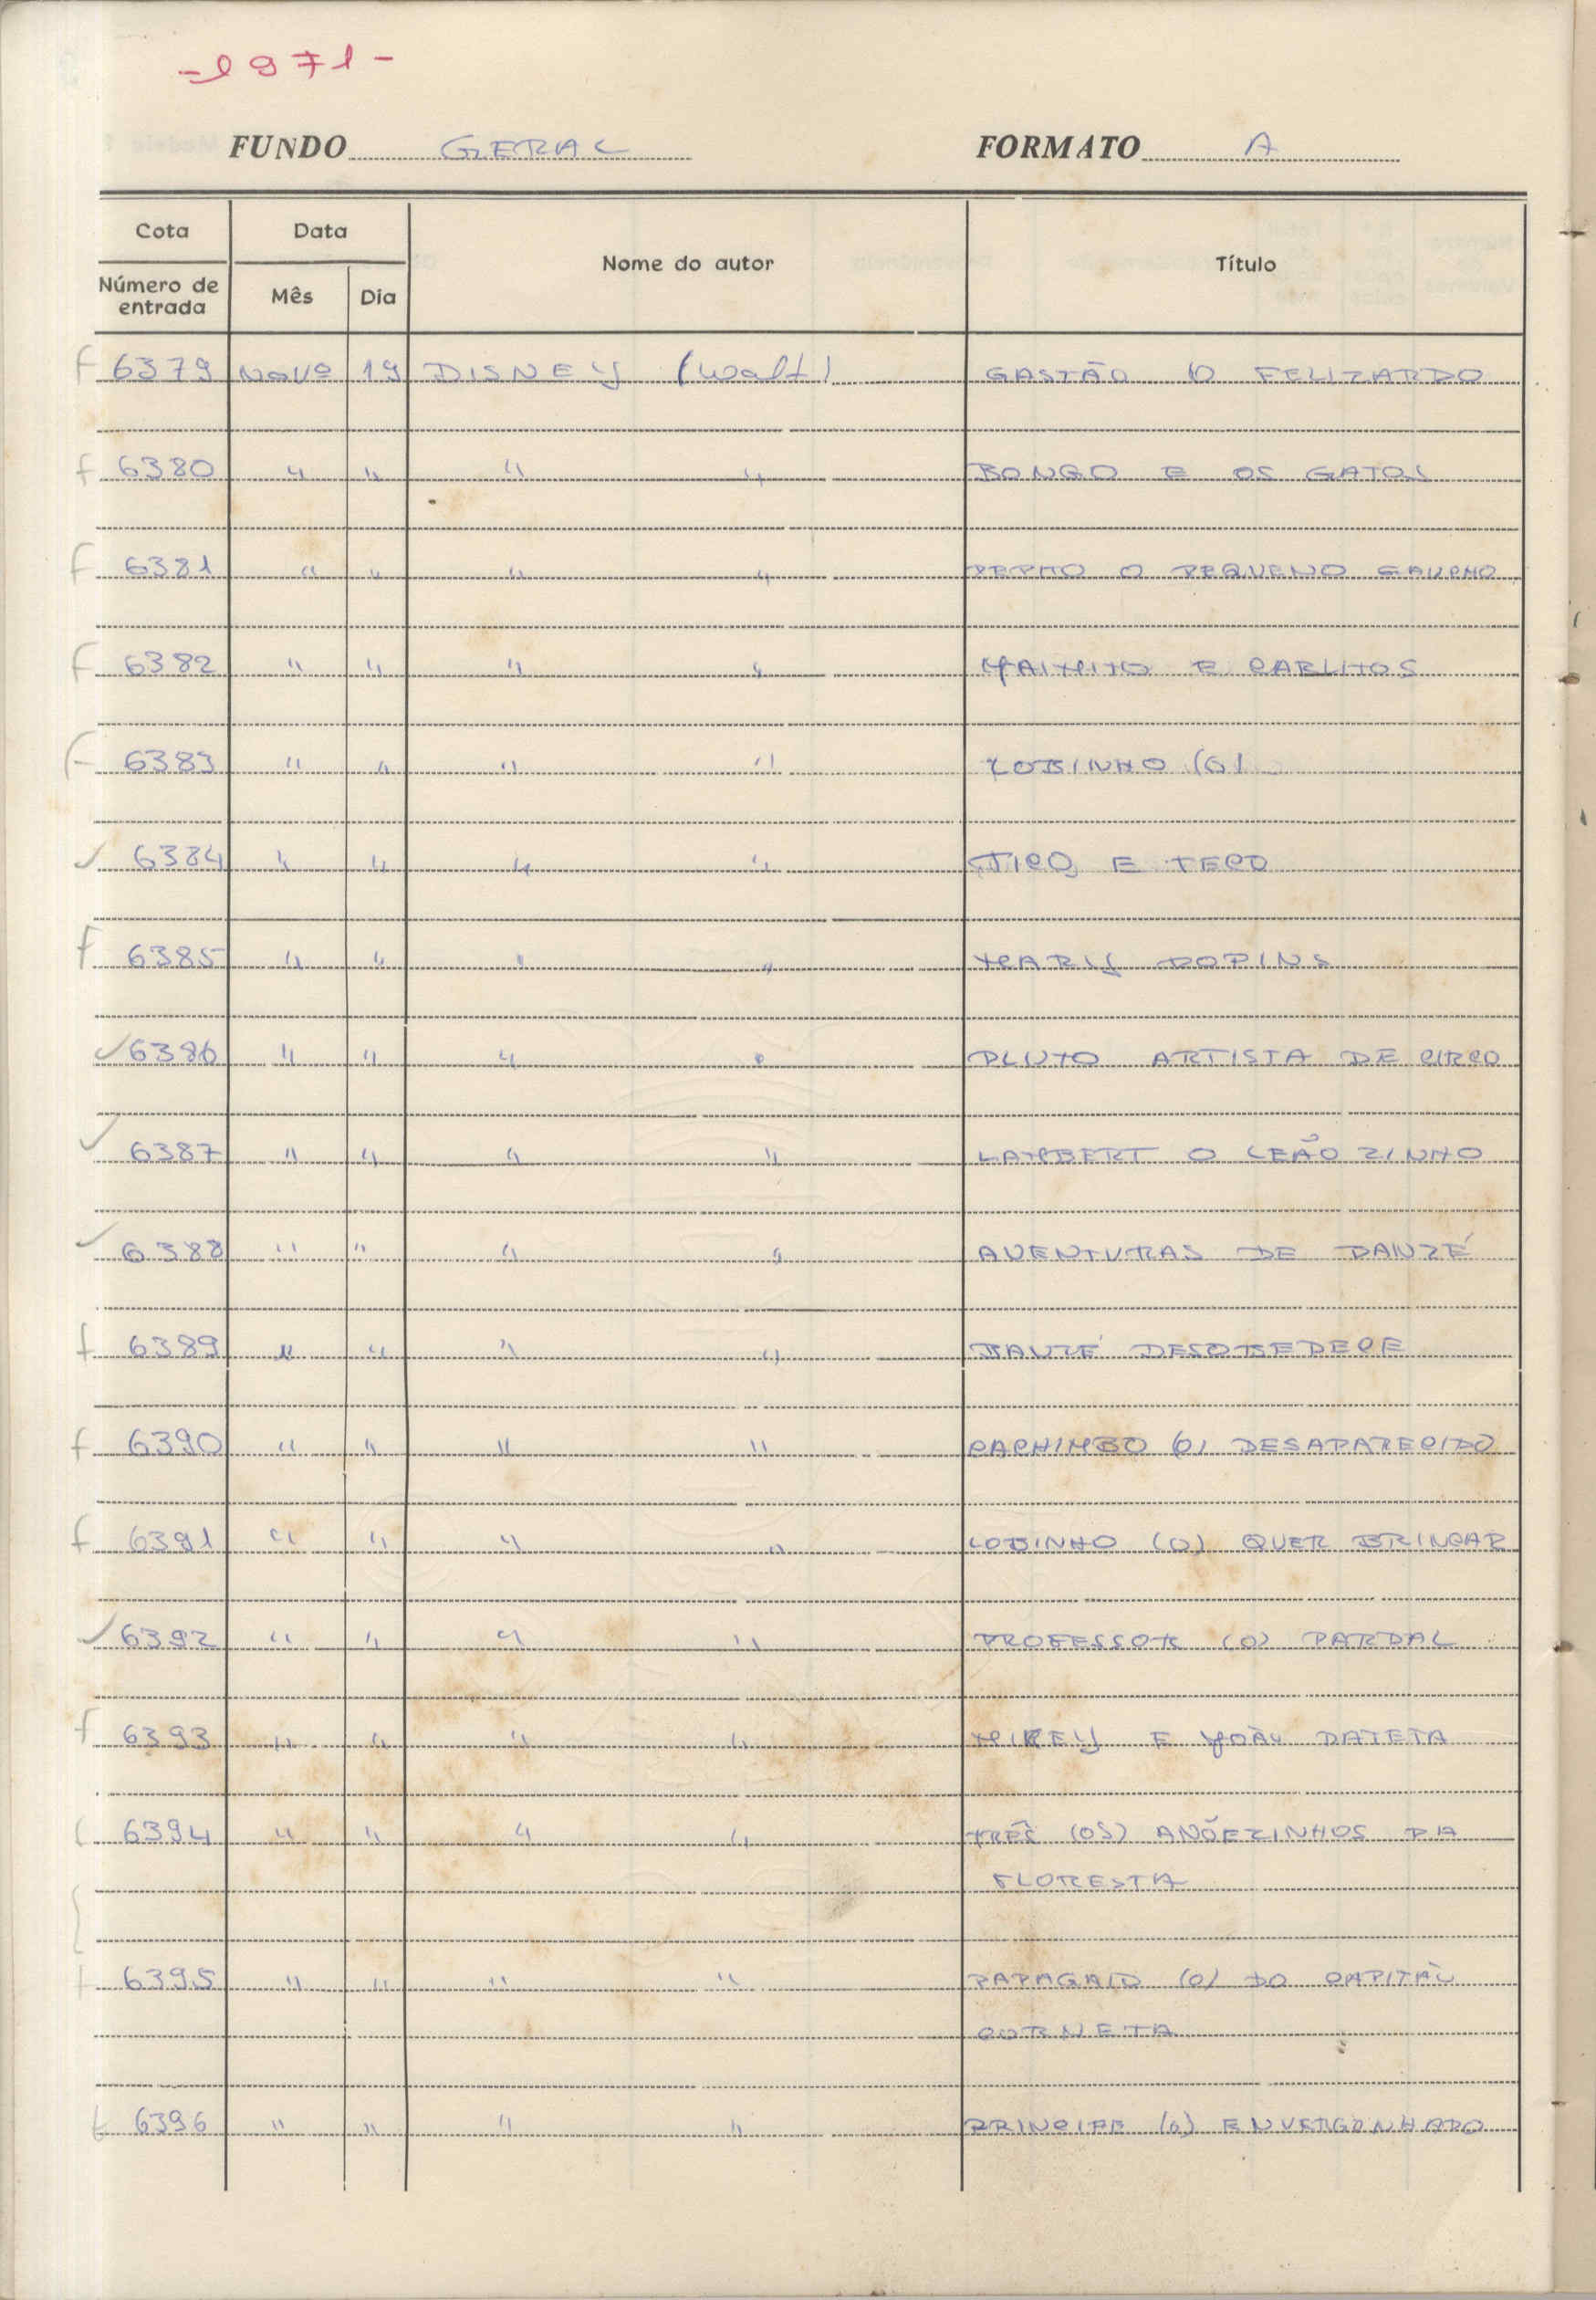 -1971-
FUNDO GERAL FORMATO A
Cota Data Nome do autor Título
Número de entrada Mês Dia
f 6379 Novº 19 DISNEY (Walt) GASTÃO O FELIZARDO
f 6380 " " " " BONGO E OS GATOS
f 6381 " " " " PEPITO O PEQUENO GAUCHO
f 6382 " " " " E CARLITOS
f 6383 " " " " LOBINHO (O)
✓ 6384 " " " " TICO E TECO
f 6385 " " " " MARY POPINS
✓ 6386 " " " " PLUTO ARTISTA DE CIRCO
✓ 6387 " " " " LAMBERT O LEÃOZINHO
✓ 6388 " " " " AVENTURAS DE BANZÉ
f 6389 " " " " BANZÉ DESOBEDECE
f 6390 " " " " CACHIMBO (O) DESAPARECIDO
f 6391 " " " " LOBINHO (O) QUER BRINCAR
✓ 6392 " " " " PROFESSOR (O) PARDAL
f 6393 " " " " MIKEY E JOÃO PATETA
f 6394 " " " " TRÊS (OS) ANÕEZINHOS DA
FLORESTA
f 6395 " " " " PAPAGAIO (O) DO CAPITÃO
CORNETA
f 6396 " " " " PRINCIPE (O) ENVERGONHADO